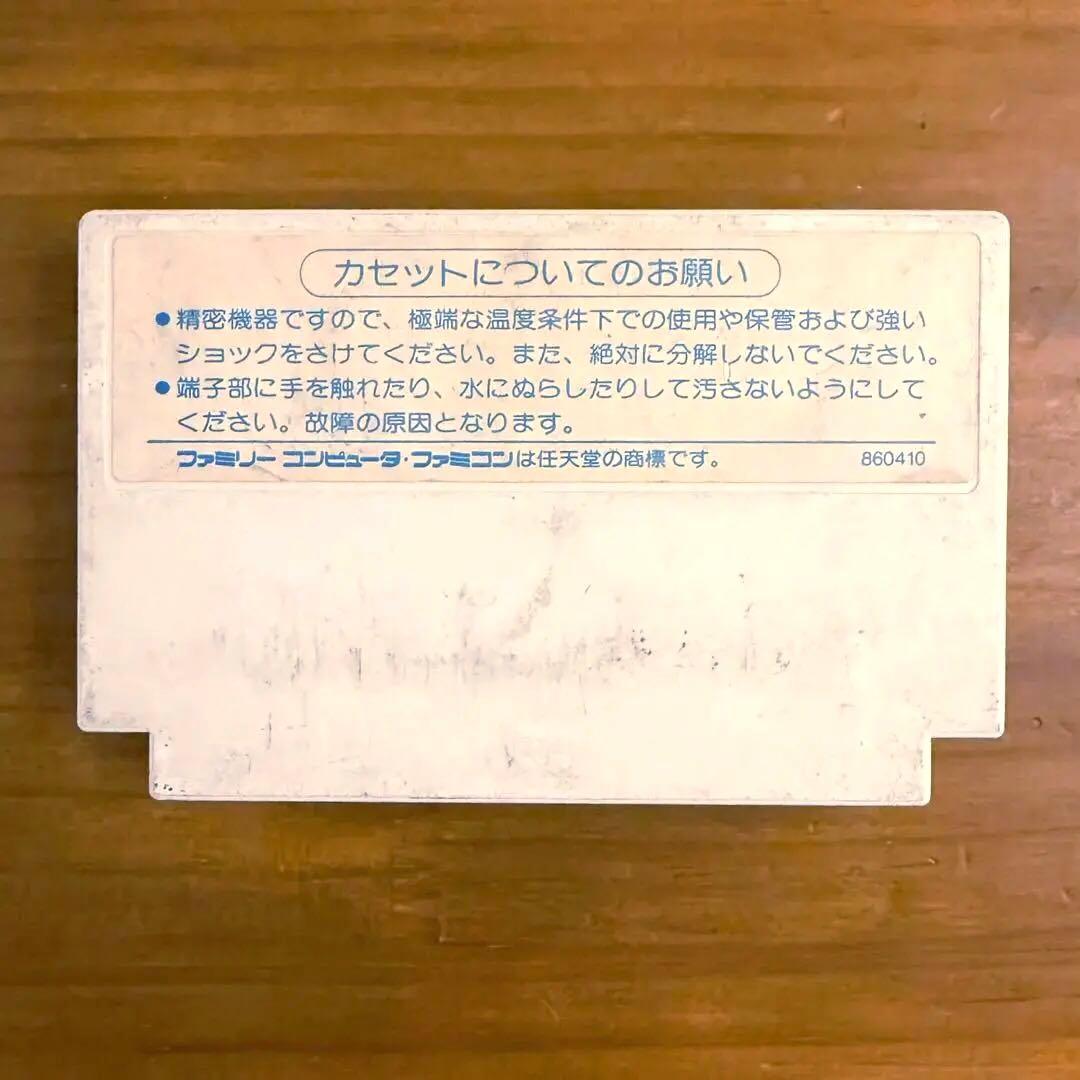 カセットについてのお願い
●精密機器ですので、極端な温度条件下での使用や保管および強い
ショックをさけてください。また、絶対に分解しないでください。
●端子部に手を触れたり、水にぬらしたりして汚さないようにして
ください。故障の原因となります。
ファミリーコンピュータ・ファミコンは任天堂の商標です。 860410